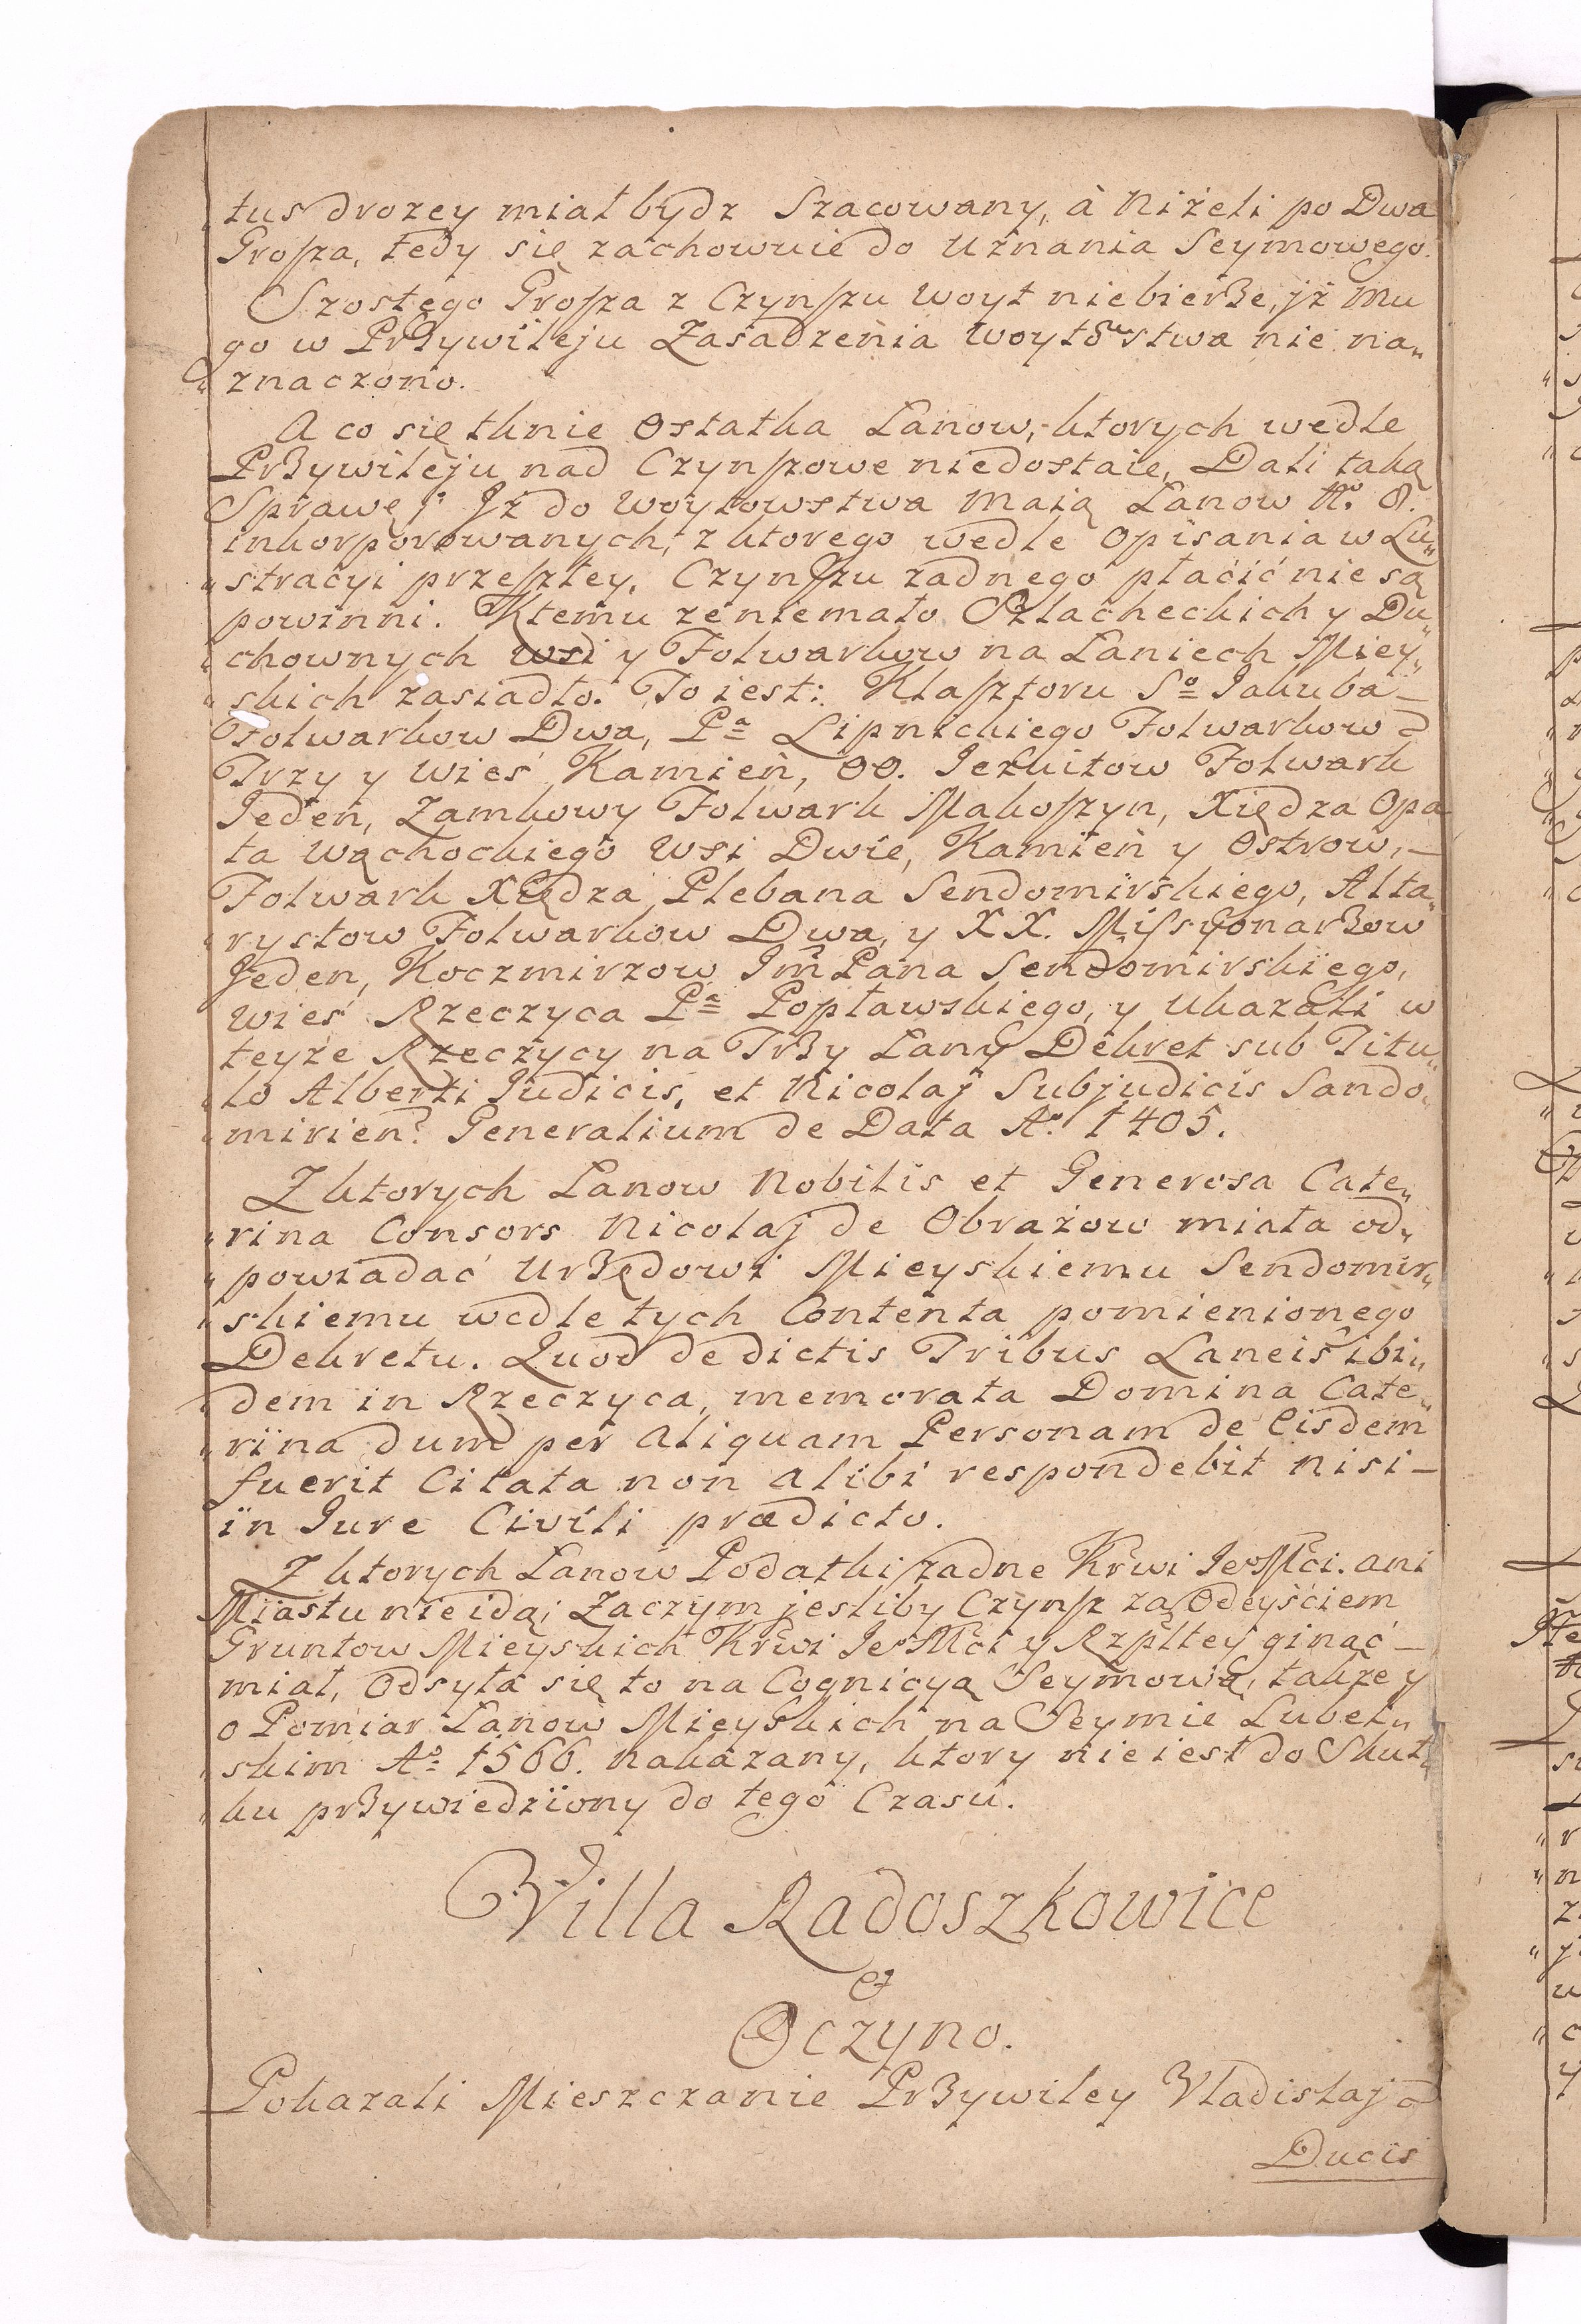 tus drozey miał bydz Szacowany, à Niżeli po Dwa
Grosza, tedy się zachowuie do Uznania Seymowego.
Szostego Grosza z Czynszu Woyt niebierze, jż mu
go w Przywileju Zasadzenia Woytowstwa nie na„
„znaczono.
A co się tknie Ostatka Łanow, ktorych wedle
Przywileju nad Czynszowe niedostaie, Dali taką
Sprawę; Jż do Woytowstwa maią Łanow No. 8.
inkorporowanych, z ktorego wedle Opisania w Lu„
„stracyi przeszłey, Czynszu zadnego płaćić nie są
powinni. Ktemu ze niemało Szlacheckich y Du„
„chownych Wsi y Folwarkow na Łaniech Miey„
„skich zasiadło. To iest: Klasztoru So Jakuba –
Folwarkow Dwa, Pa Lipnickiego Folwarkow
Trzy y Wieś Kamień, OO. Jezuitow Folwark
Jeden, Zamkowy Folwark Makoszyn, Xiędza Opa
ta Wąchockiego Wsi Dwie, Kamień y Ostrow, –
Folwark Xiędza Plebana Sendomirskiego, Alta„
„rystow Folwarkow Dwa, y XX. Missyonarzow
Jeden, Koczmirzow Jm̃ Pana Sendomirskiego,
Wieś Rzeczyca Pa Popławskiego, y Ukazali w
teyże Rzeczycy na Trzy Łany Dekret sub Titu„
„lo Alberti Judicis, et Nicolaj Subjudicis Sando„
„mirien: Generalium de Data Ao. 1405.
Z ktorych Łanow Nobilis et Generosa Cate„
„rina Consors Nicolaj de Obrazow miała od„
„powiadać Urzędowi Mieyskiemu Sendomir„
„skiemu wedle tych Contenta pomienionego
Dekretu. Quod de dictis Tribus Laneis ibi„
„dem in Rzeczyca, memorata Domina Cate„
„rina dum per Aliquam Personam de Eisdem
fuerit Citata non alibi respondebit nisi –
in Jure Civili prædicto.
Z ktorych Łanow Podatki żadne Krwi JeoMći. ani
Miastu nie idą; Zaczym jesliby Czynsz za Odeyśćiem
Gruntow Mieyskich Krwi JeoMći y Rzpltey ginąć –
miał, Odsyła się to na Cognicyą Seymową, takze y
o Pomiar Łanow Mieyskich na Seymie Lubel„
„skim Ao 1566. nakazany, ktory nie iest do Skut„
„ku przywiedziony do tego Czasu.
Villa Radoszkowice
et
Oczyno.
Pokazali Mieszczanie Przywiley Vladislaj
Ducis